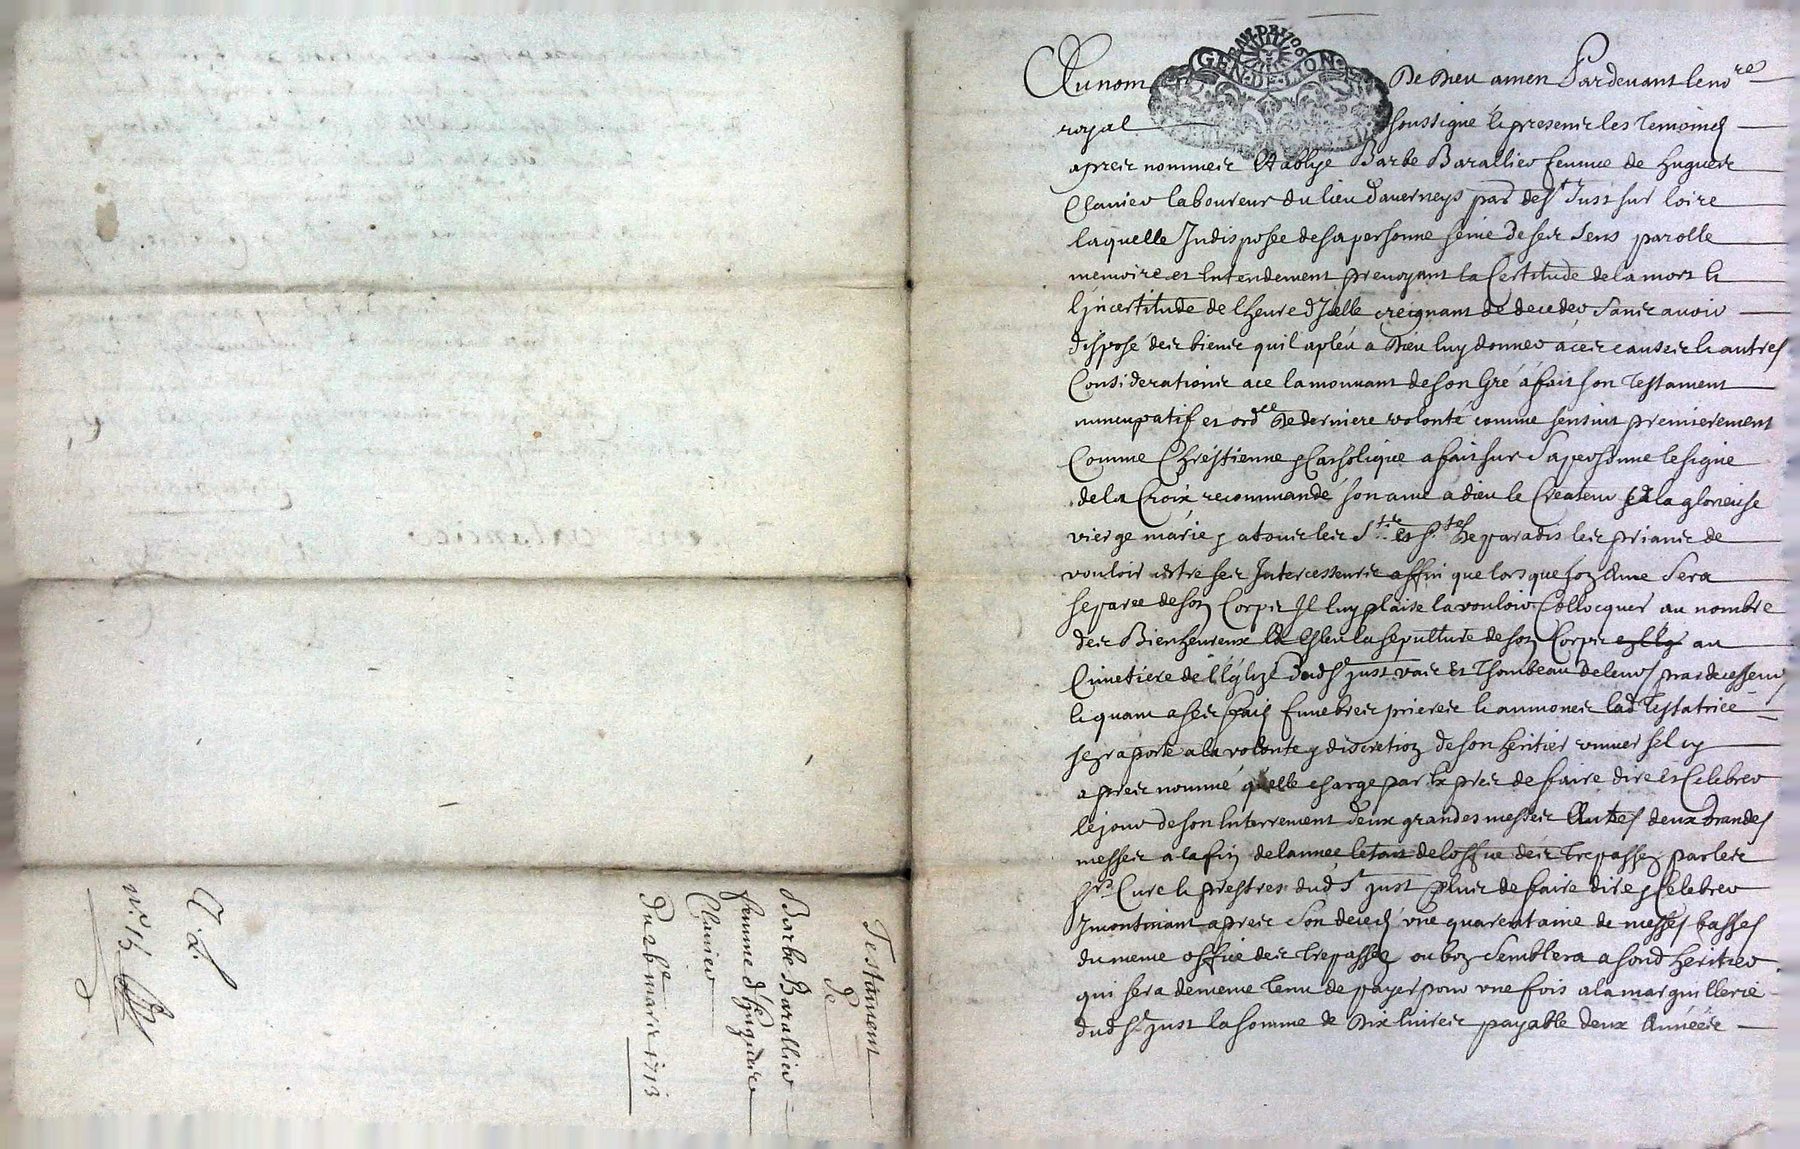 Testament
de
Barbe Barallier
femme d'hugueic
Clavier
Du 2e mars 1713
n.º 15
GEN·DE·LION
Au nom De Dieu amen Pardevant le nore
royal soussigné & presentz les temoins
apreiz nommeiz Establye Barbe Barallier femme de hugueiz
Clavier laboureur du lieu daverneys parr de St Just sur loire
laquelle Indisposee de sa personne seine de seiz sens parolle
memoire et Entendement prevoyant la Certitude de la mort &
lincertitude de lheure dicelle creignant de deceder sanz avoir
disposé deiz bienz quil a pleu a Dieu luy donner a ceiz causeiz & autres
Considerationz a ce la mouvant de son Gré a fait son Testament
nuncupatif et ordce De derniere volonté comme sensuit premierement
Comme Chrestienne & Catholique a fait sur sa personne le signe
de la Croix recommandé son ame a dieu le Createur & a la glorieuse
vierge marie & a touz leiz Sts et Stes De paradis leiz prianz de
vouloir estre seiz Intercesseurz affin que lorsque son Ame sera
separee de son Corpz Il luy plaise la vouloir Collocquer au nombre
deiz Bienheureux Et Esleu la sepulture de son Corpz au
Cimetiere de lEglize Dud St just vaiz Et Thombeau de leurs predecesseurs
& quant a seiz fraiz funebreiz priereiz & aumoneiz lad Testatrice
sen raporte a la volonte & discretion de son heritier universel cy
apreiz nommé quelle charge par Expreiz de faire dire et Celebrer
le jour de son Enterrement deux grandes messeiz Autres deux Grandes
messeiz a la fin de lannee le tout de loffice deiz Trepassez par leiz
srs Cure & prestres dud St just pluiz de faire dire & Celebrer
Incontinant apreiz son decedz une quarentaine de messes basses
du meme office deiz Trepassez ou bon semblera a sond heritier
qui sera de meme Tenu de payer pour une fois a la marguillerie
dud St just la somme de Dix livreiz payable deux Anneeiz